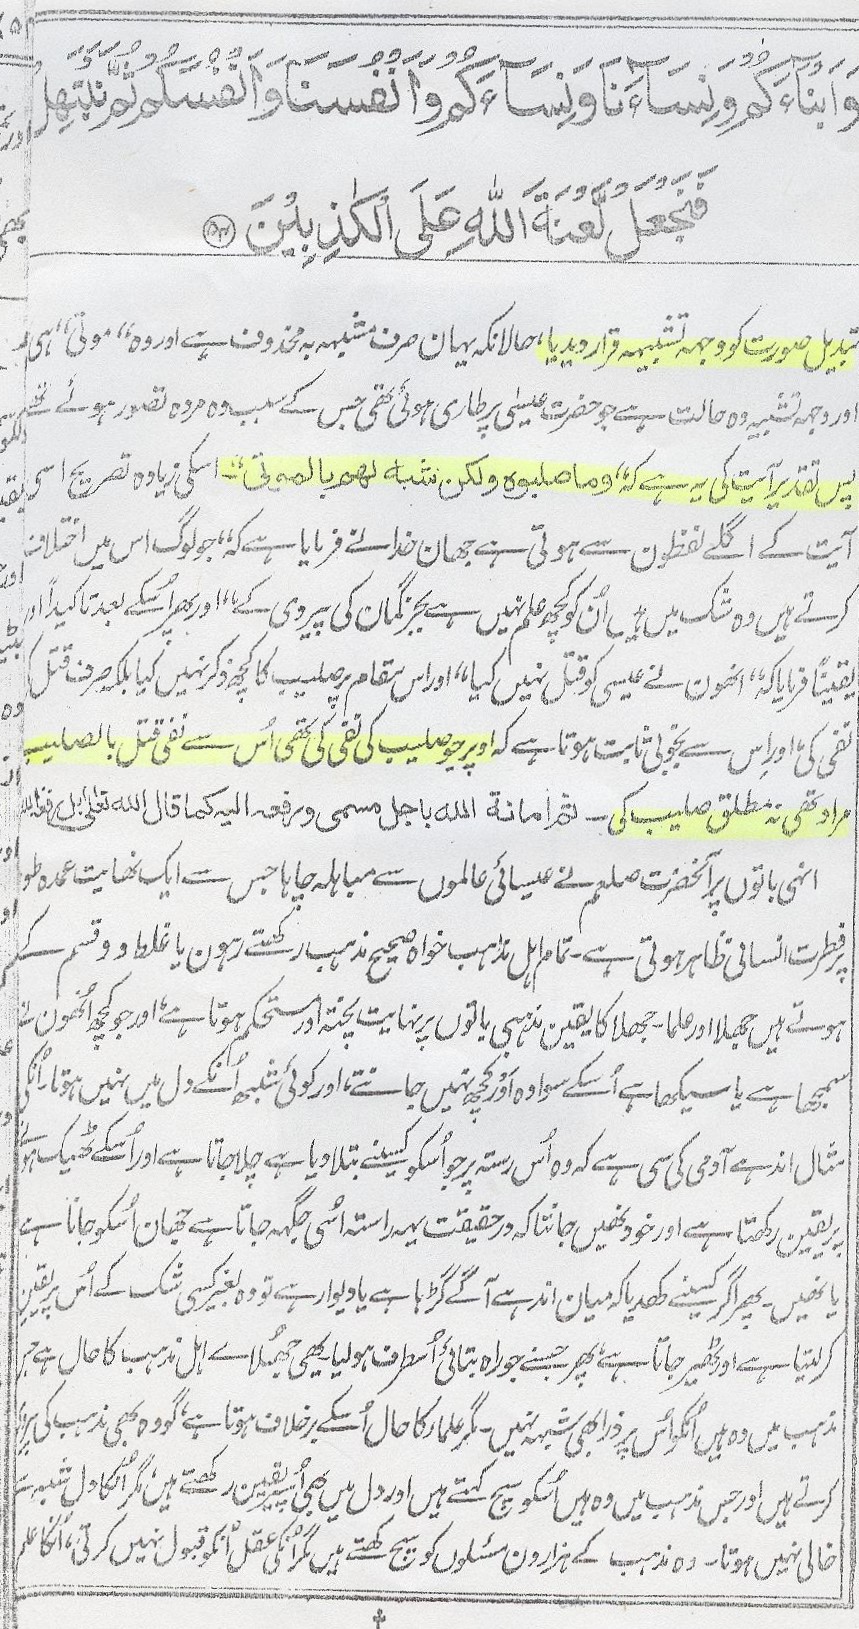 وَاَبْنَآءَكُمْ وَنِسَآءَنَا وَنِسَآءَكُمْ وَاَنْفُسَنَا وَاَنْفُسَكُمْ ثُمَّ نَبْتَهِلْ
فَنَجْعَلْ لَّعْنَةَ اللّٰهِ عَلَى الْكٰذِبِيْنَ
تبدیل صورت کو وجہہ تشبیہہ قرار دیدیا، حالانکہ یہان صرف مشبہہ بہ محذوف ہے اور وہ "موتی" ہی
اور وجہہ تشبیہ وہ حالت ہے جو حضرت عیسٰی پر طاری ہوئی تھی جس کے سبب وہ مردہ تصور ہوئے تھے
پس تقدیر آیت کی یہ ہے کہ "وما صلبوہ ولکن شبہ لھم بالموتی"۔ اسکی زیادہ تصریح اسی
آیت کے اگلے لفظون سے ہوتی ہے جہان خدا نے فرمایا ہے کہ "جو لوگ اس میں اختلاف
کرتے ہیں وہ شک میں ہیں اُن کو کچھ علم نہیں ہے بجز گمان کی پیروی کے" اور پھر اُسکے بعد تاکیداً اور
یقیناً فرمایا کہ "انھون نے عیسی کو قتل نہیں کیا" اور اس مقام پر صلیب کا کچھ ذکر نہیں کیا بلکہ صرف قتل کی
نفی کی، اور اِس سے بخوبی ثابت ہوتا ہے کہ اوپر جو صلیب کی نفی کی تھی اُس سے نفی قتل بالصلیب
مراد تھی نہ مطلق صلیب کی۔ ثم اماتہ اللہ باجل مسمی ورفعہ الیہ کما قال اللہ تعالیٰ بل رفعہ اللہ
انہی باتوں پر آنحضرت صلعم نے عیسائی عالموں سے مباہلہ چاہا جس سے ایک نھایت عمدہ طور
پر فطرت انسانی ظاہر ہوتی ہے۔ تمام اہل مذاہب خواہ صحیح مذہب رکھتے ہون یا غلط دو قسم کے
ہوتے ہیں جھلا اور علما۔ جھلا کا یقین مذہبی باتوں پر نہایت پختہ اور مستحکم ہوتا ہے، اور جو کچھ اُنھون نے
سمجھا ہے یا سیکھا ہے اُسکے سوا وہ اَوْر کچھ نہیں جانتے، اور کوئی شبھہ اُنکے دل میں نہیں ہوتا۔ اُنکی
مثال اندہے آدمی کی سی ہے کہ وہ اُس رستہ پر جو اُسکو کسینے بتلا دیا ہے چلا جاتا ہے اور اُسکے ٹھیک ہونے
پر یقین رکھتا ہے اور خود نھیں جانتا کہ درحقیقت یہہ راستہ اُسی جگہہ جاتا ہے جہان اُسکو جانا ہے
یا نھیں۔ پھر اگر کسینے کھدیا کہ میان اندہے آگے گڑہا ہے یا دیوار ہے تو وہ بغیر کسی شک کے اُس پر یقین
کرلیتا ہے اور ٹھیر جاتا ہے، پھر جسنے جو راہ بتائی اُسطرف ہولیا۔ یھی جُھلاے اہل مذہب کا حال ہے جس
مذہب میں وہ ہیں اُنکو اُس پر ذرا بھی شبہہ نہیں۔ مگر علماء کا حال اُسکے برخلاف ہوتا ہے، گو وہ بھی مذہب کی پیروی
کرتے ہیں اور جس مذہب میں وہ ہیں اُسکو سچ کہتے ہیں اور دل میں بھی اُسپر یقین رکھتے ہیں، مگر اُنکا دل شبہہ سے
خالی نہیں ہوتا۔ وہ مذہب کے ہزارون مسئلوں کو سچ کھتے ہیں مگر اُنکی عقل اُنکو قبول نہیں کرتی، اُنکا علم